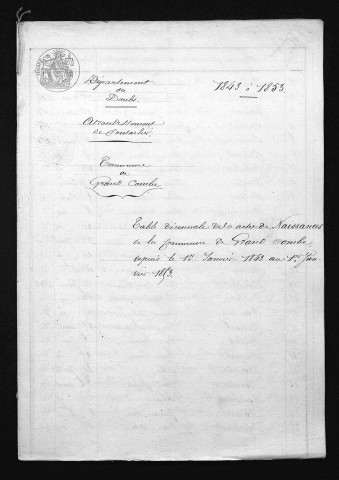 Département
du
Doubs
1843 à 1853
Arrondissement
de Pontarlier
Commune
de
Grand'Combe
Table décennale des actes de Naissances
de la Commune de Grand'Combe
depuis le 1er Janvier 1843 au 1er Jan-
vier 1853.